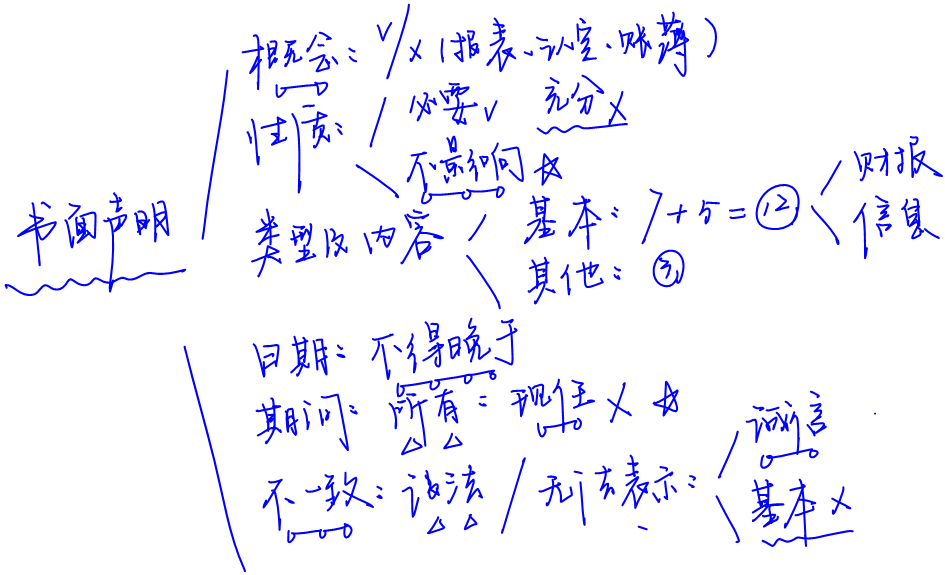 概念：√/×（报表、认定、账薄）
性质： 必要√ 充分×
不影响☆
书面声明
类型及内容 基本：7+5=⑫ 财报
信息
其他：③
日期：不得晚于
期间：所有：现任×☆
不一致：设法/无法表示： 诚信
基本×